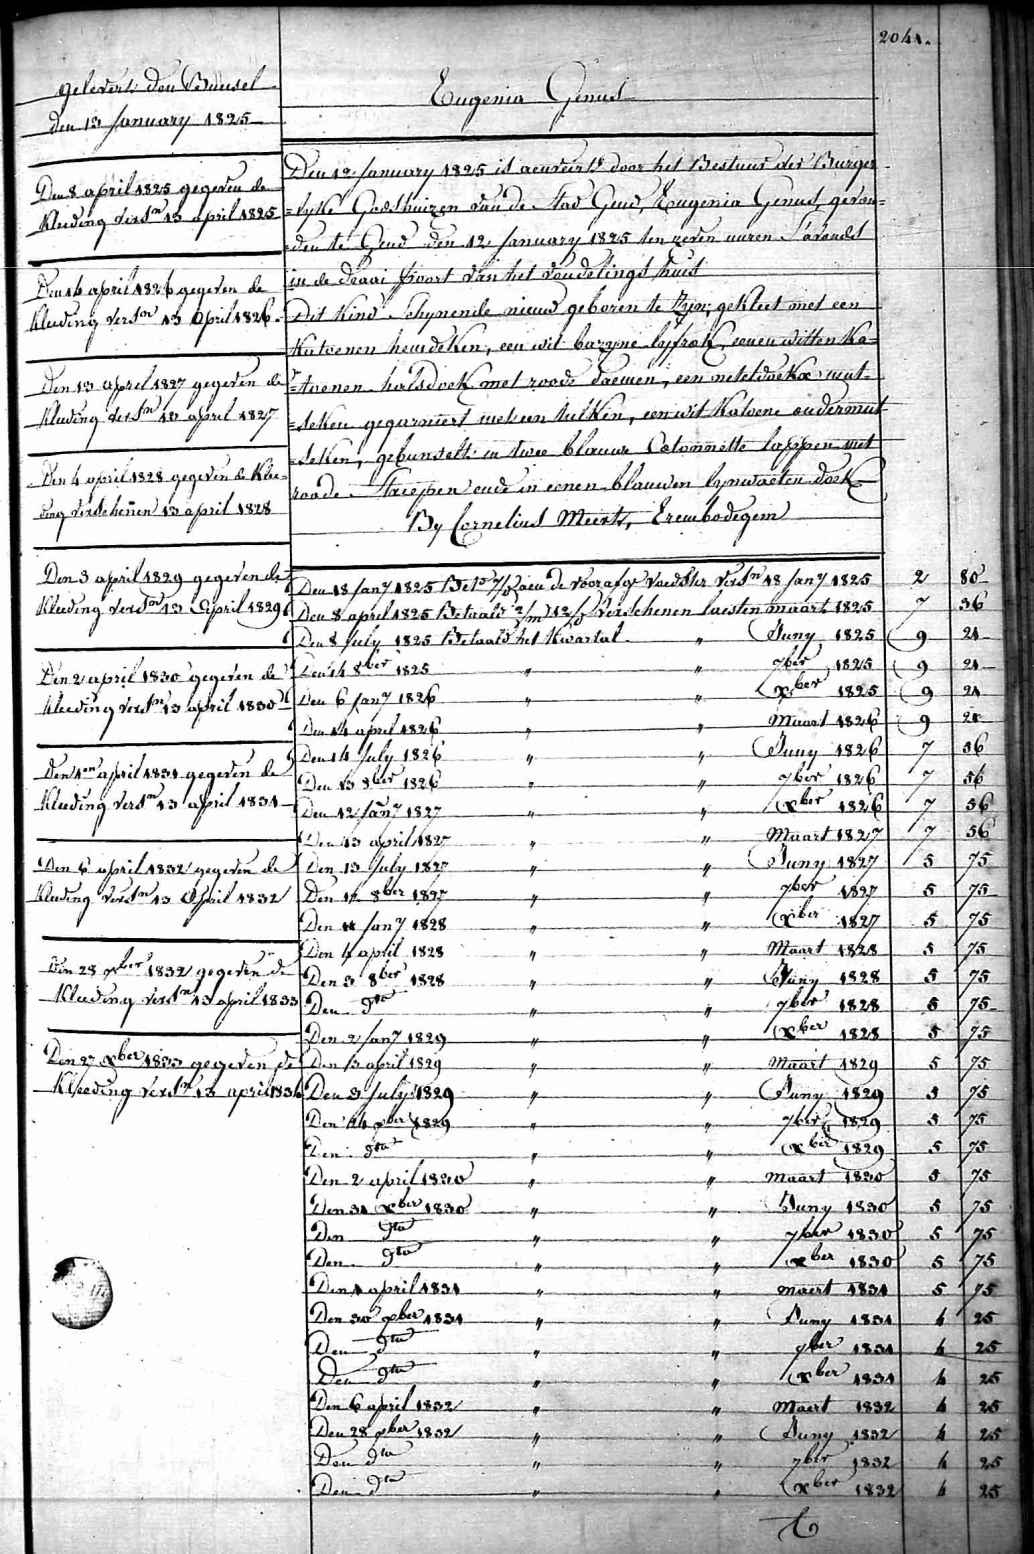 2041.
gelevert den Bundsel
den 13 January 1825
Den 8 april 1825 gegeven de
Kleeding vers.en 13 april 1825
Den 14 april 1826 gegeven de
Kleeding vers.en 13 April 1826
Den 13 april 1827 gegeven de
Kleeding vers.en 13 april 1827
Den 4 april 1828 gegeven de Klee=
ding verschenen 13 april 1828
Den 3 april 1829 gegeven de
Kleeding vers.en 13 April 1829
Den 2 april 1830 gegeven de
Kleeding vers.en 13 april 1830
Den 1en april 1831 gegeven de
Kleeding vers.en 13 april 1831
Den 6 april 1832 gegeven de
Kleeding vers.en 13 April 1832
Den 28 xber 1832 gegeven de
Kleeding vers.en 13 april 1833
Den 27 xber 1833 gegeven de
Kleeding vers.en 13 april 1834
Eugenia Genus
Den 12 January 1825 is aenveirt door het Bestuur der Burger
=lyke Godshuizen van de Stad Gend, Eugenia Genus, gevon=
=den te Gend den 12 January 1825 ten zeven uuren S'avonds
in de draai poort van het vondelings huis
Dit Kind Schynende nieuw geboren te Zyn, gekleet met een
Katoenen hemdeken, een wit bazyne lyfrok, eenen witten Ka=
=toenen halsdoek met roode boemen, een neteldoekx mut=
=seken gegarniert met een tulken, een wit Katoene ondermut
=seken, gebunselt in twee blauwe Cotonnette lappen met
roode Streepen ende in eenen blauwen lynwaeten doek
By Cornelius Meerts, Erembodegem
Den 18 Jany 1825 Bet. aen de voorafge voedster vers.en 18 Jany 1825 2 80
Den 8 april 1825 Betaald 2/m 12/d verschenen laesten maart 1825 7 36
Den 8 July 1825 Betaald het Kwartal " Juny 1825 9 21
Den 14 8ber 1825 " " 7ber 1825 9 21
Den 6 Jany 1826 " " xber 1825 9 21
Den 14 april 1826 " " Maart 1826 9 21
Den 14 July 1826 " " Juny 1826 7 36
Den 13 8ber 1826 " " 7ber 1826 7 36
Den 12 Jany 1827 " " xber 1826 7 36
Den 13 april 1827 " " Maart 1827 7 36
Den 13 July 1827 " " Juny 1827 5 75
Den 12 8ber 1827 " " 7ber 1827 5 75
Den 11 Jany 1828 " " xber 1827 5 75
Den 4 april 1828 " " Maart 1828 5 75
Den 3 8ber 1828 " " Juny 1828 5 75
Den dta " " 7ber 1828 5 75
Den 2 Jany 1829 " " xber 1828 5 75
Den 13 april 1829 " " Maart 1829 5 75
Den 3 July 1829 " " Juny 1829 5 75
Den 24 xber 1829 " " 7ber 1829 5 75
Den dta " " xber 1829 5 75
Den 2 april 1830 " " maart 1830 5 75
Den 31 xber 1830 " " Juny 1830 5 75
Den dta " " 7ber 1830 5 75
Den dta " " xber 1830 5 75
Den 1 april 1831 " " maert 1831 5 75
Den 30 xber 1831 " " Juny 1831 4 25
Den dta " " 7ber 1831 4 25
Den dta " " xber 1831 4 25
Den 6 april 1832 " " Maert 1832 4 25
Den 28 xber 1832 " " Juny 1832 4 25
Den dta " " 7ber 1832 4 25
Den dta " " xber 1832 4 25